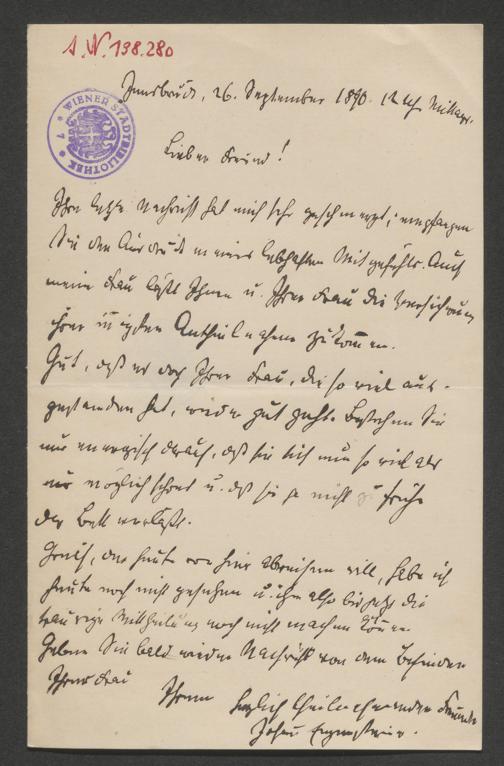 I. N. 138.280
WIENER STADTBIBLIOTHEK
Innsbruck, 26. September 1890. 12 Uhr Mittags.
Lieber Freund!
Ihre letzte Nachricht hat mich sehr geschmerzt; empfangen
Sie den Ausdruck meines lebhaften Mitgefühls. Auch
meine Frau läßt Ihnen u. Ihrer Frau die Versicherung
ihrer innigsten Antheilnahme zukommen.
Gut, daß es doch Ihrer Frau, die so viel aus-
gestanden hat, wieder gut geht. Bestehen Sie
nur energisch darauf, daß sie sich nun so viel als
nur möglich schont u. daß sie ja nicht zu früh
das Bett verläßt.
der heute von hier abreisen will, habe ich
heute noch nicht gesehen u. ihm also bis jetzt die
traurige Mittheilung noch nicht machen können.
Geben Sie bald wieder Nachricht von dem Befinden
Ihrer Frau
Ihrem herzlich theilnehmenden Freunde
Johann